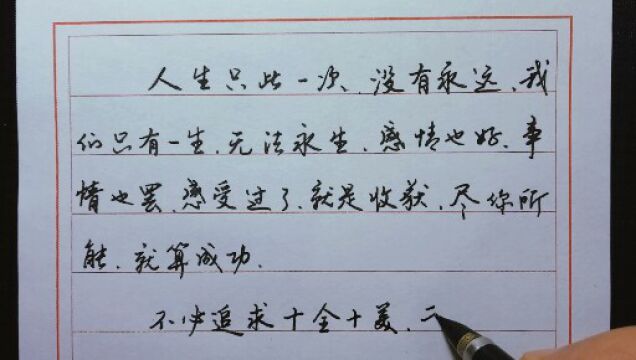 人生只此一次、没有永远、我
们只有一生、无法永生、感情也好、事
情也罢、感受过了、就是收获、尽你所
能、就算成功.
不必追求十全十美、